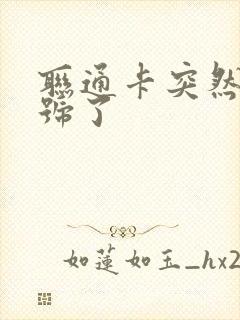 聯通卡突然
號了
如蓮如玉_hx2